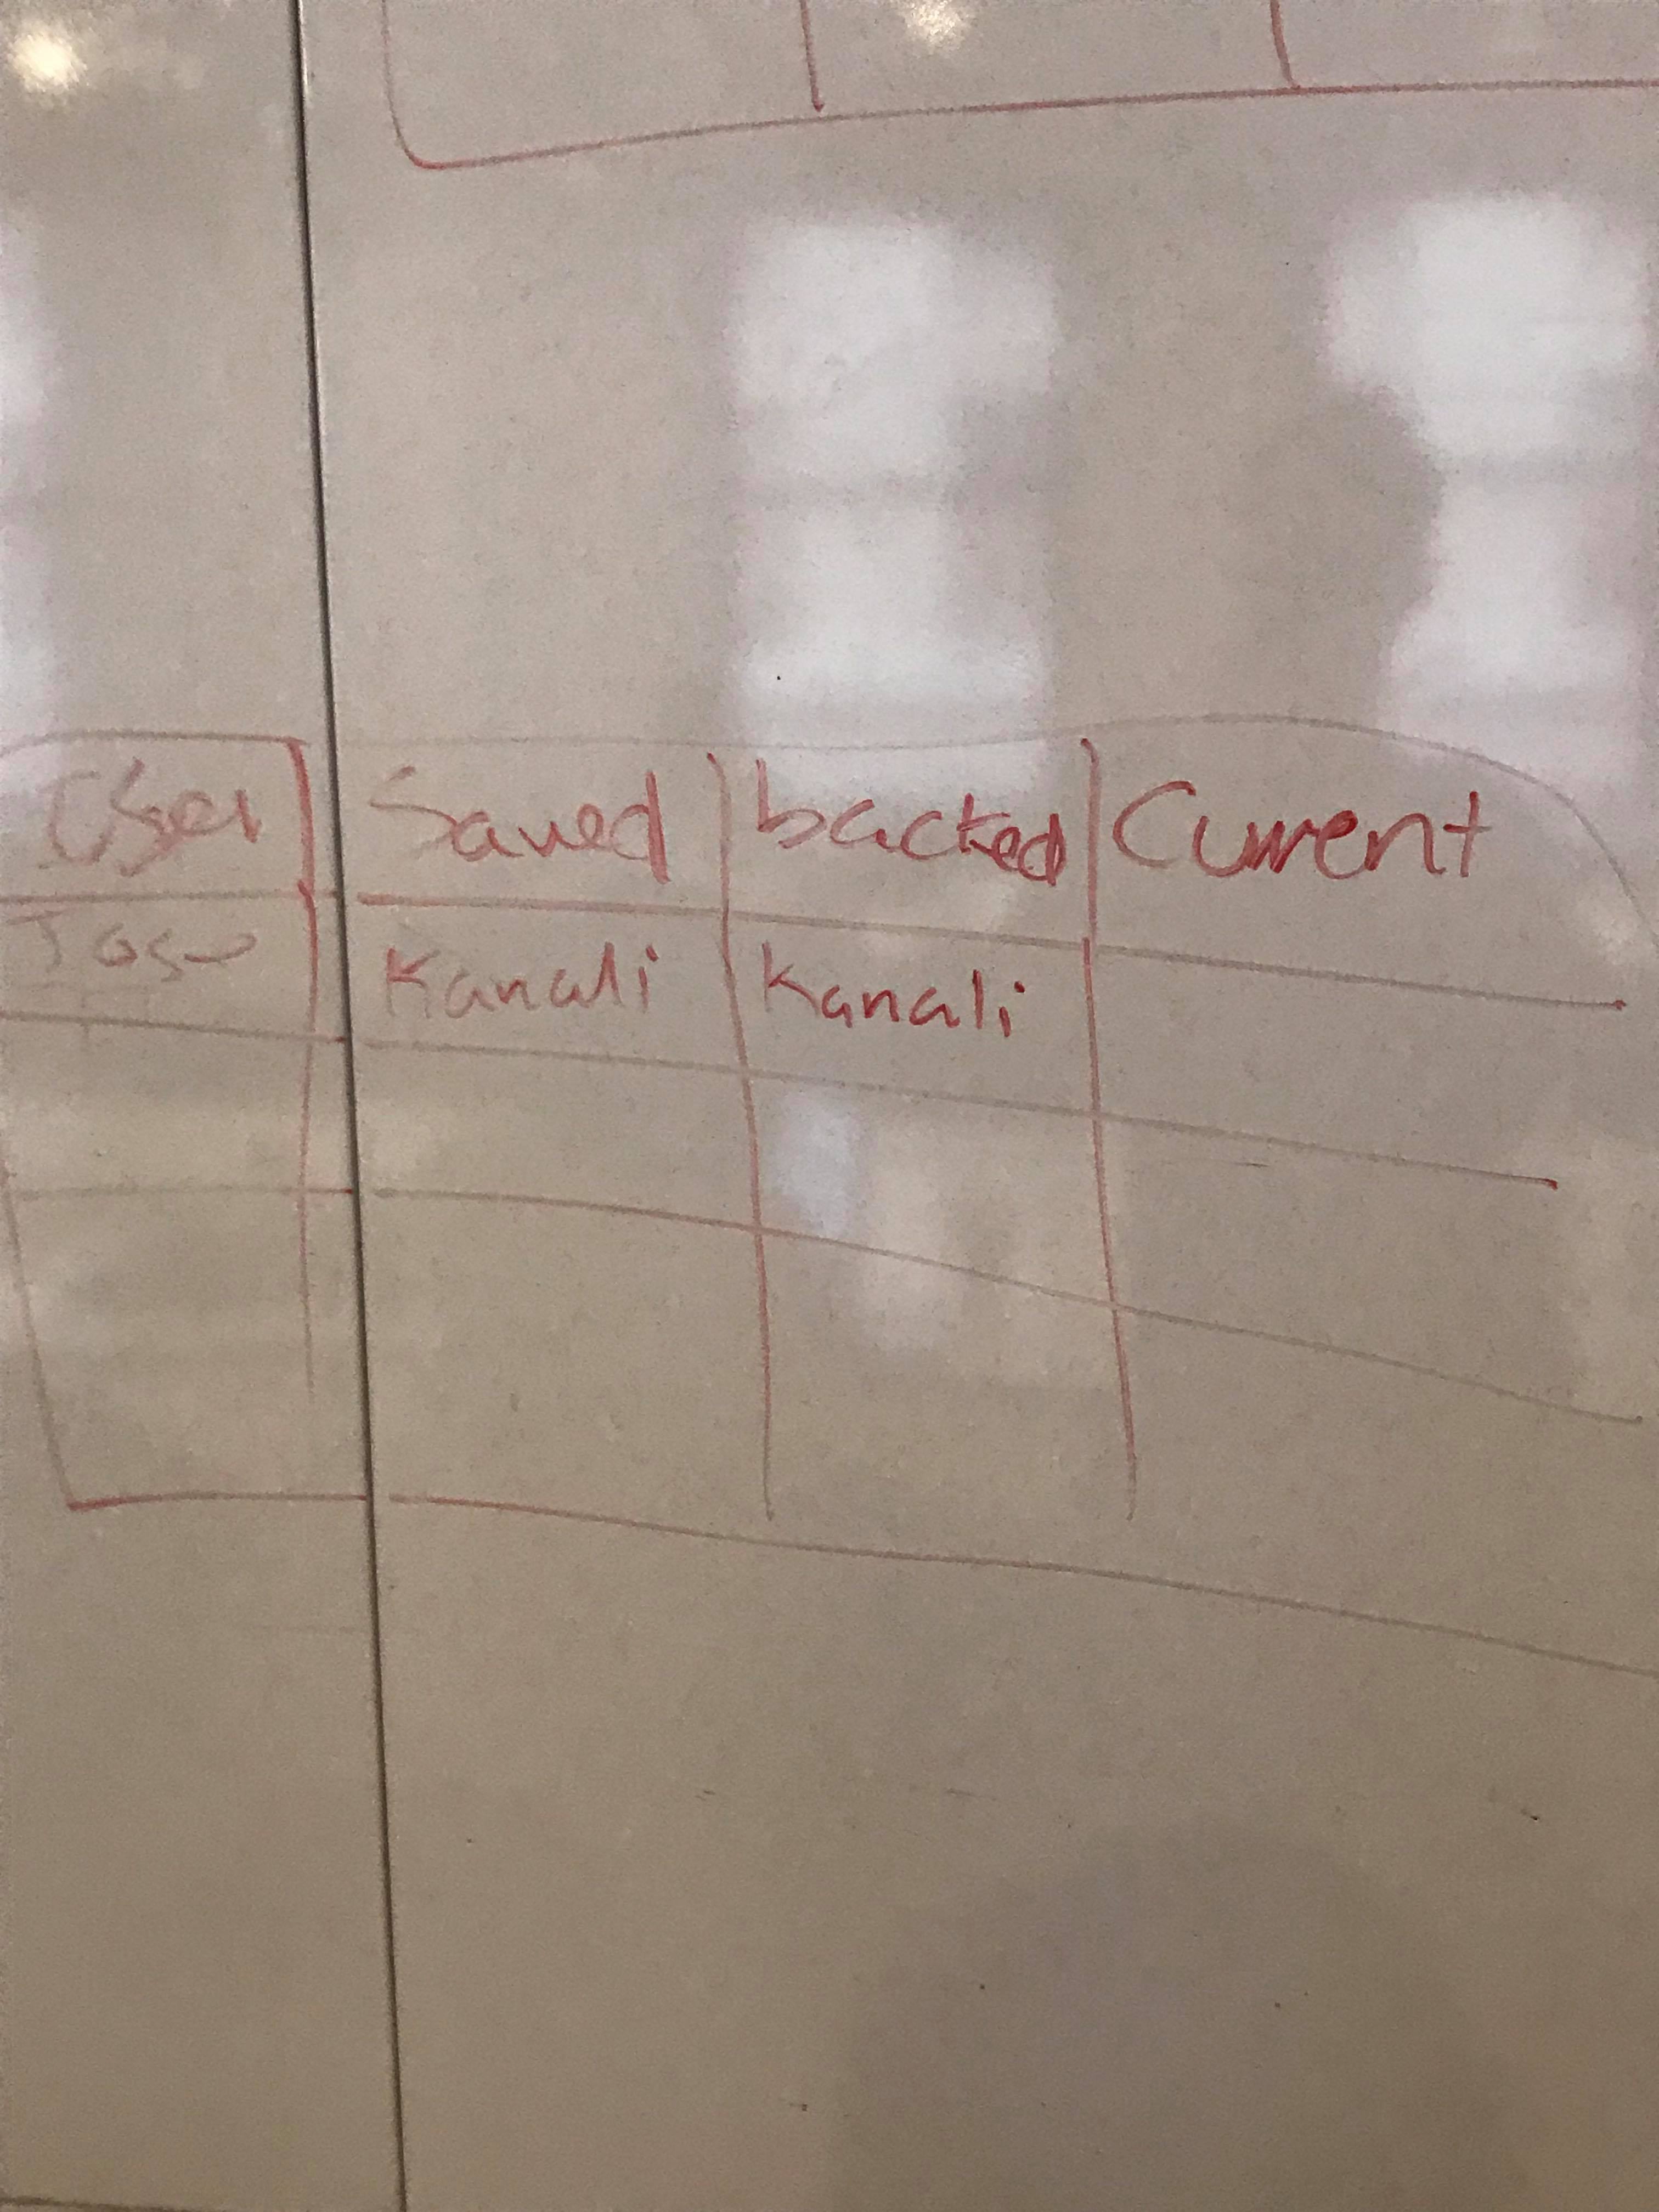 User Saved backed Current
Jose Kanali Kanali